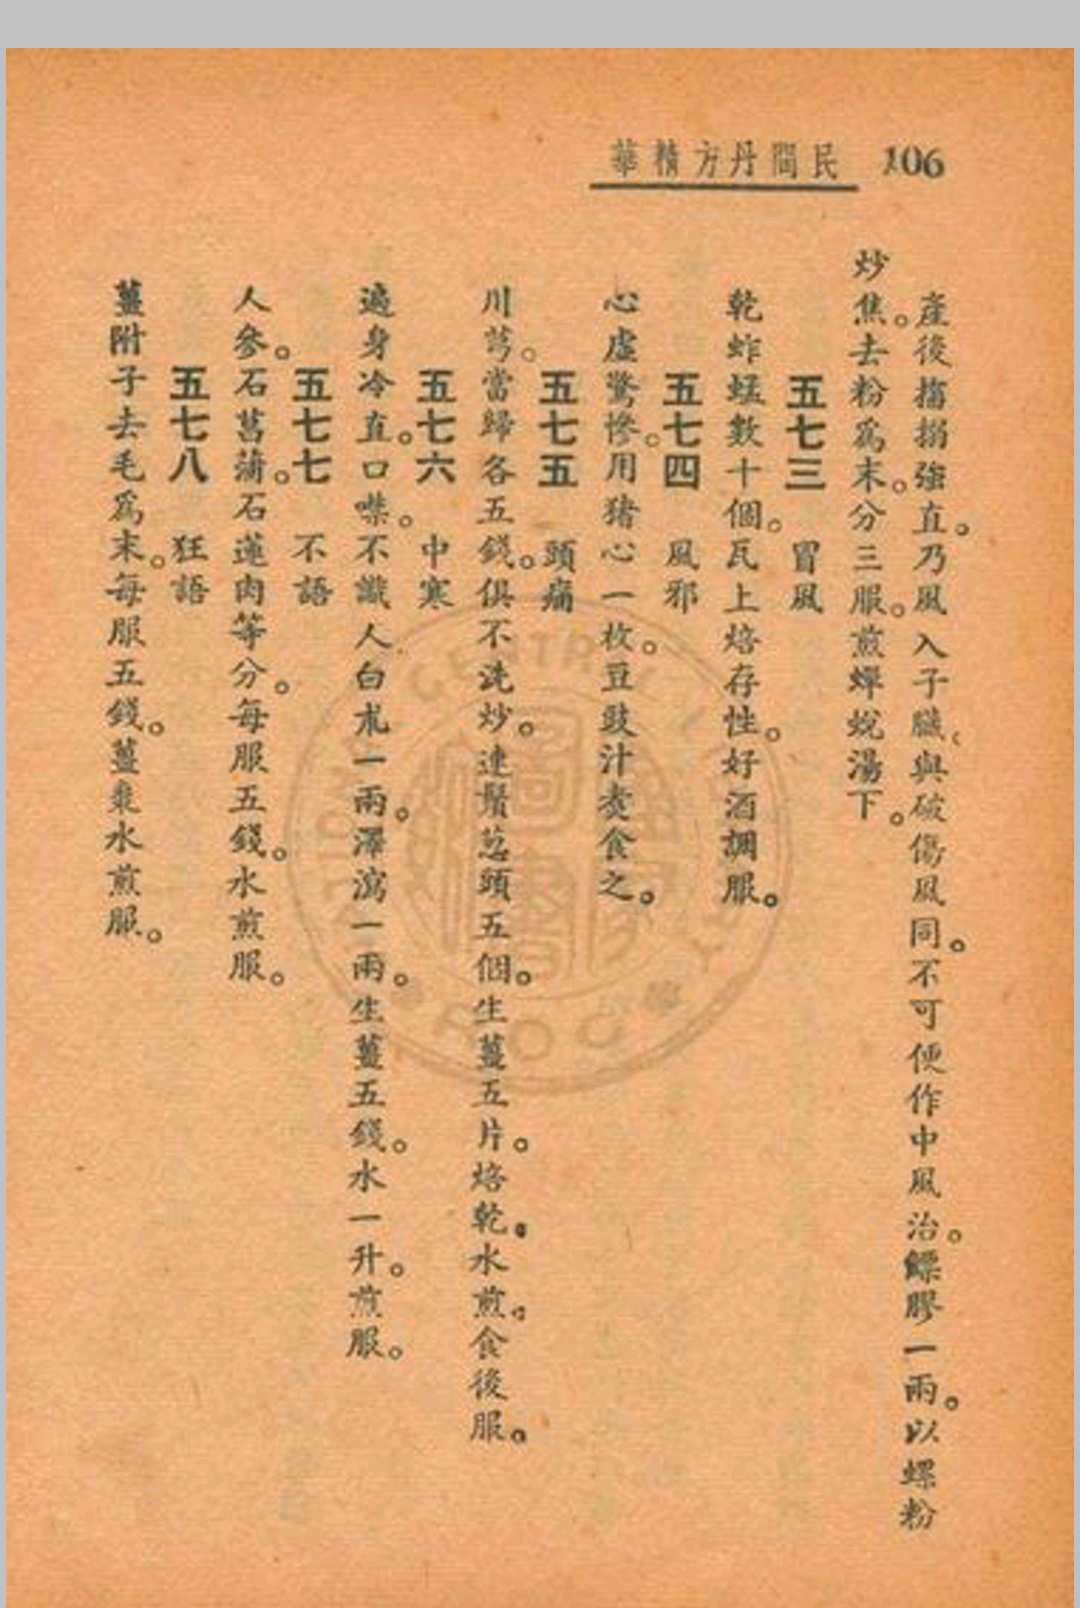 106 民間丹方精華
產後搐搦強直。乃風入子臟。與破傷風同。不可便作中風治。鰾膠一兩。以螺粉
炒焦。去粉爲末。分三服。煎蟬蛻湯下。
五七三 冒風
乾蚱蜢數十個。瓦上焙存性。好酒調服。
五七四 風邪
心虛驚慘。用猪心一枚。豆豉汁煑食之。
五七五 頭痛
川芎。當歸各五錢。俱不洗炒。連鬚葱頭五個。生薑五片。焙乾。水煎。食後服。
五七六 中寒
遍身冷直。口噤。不識人白朮一兩。澤瀉一兩。生薑五錢。水一升。煎服。
五七七 不語
人參。石菖蒲。石蓮肉等分。每服五錢。水煎服。
五七八 狂語
薑附子去毛爲末。每服五錢。薑棗水煎服。
CENTRAL LIBRARY
圖書
R.O.C.